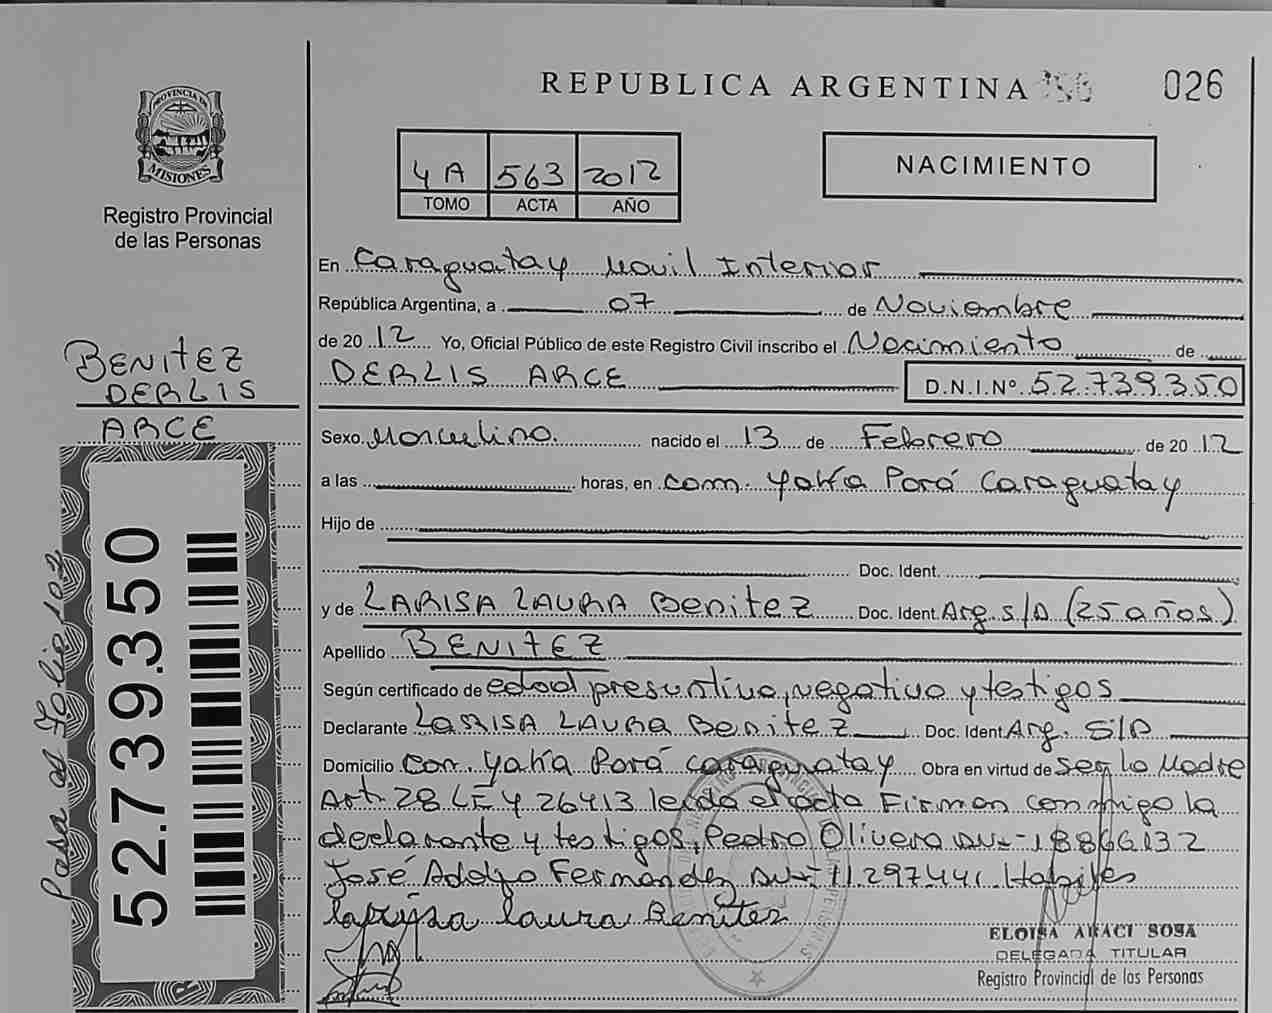 REPUBLICA ARGENTINA
026
PROVINCIA DE
MISIONES
Registro Provincial
de las Personas
4 A 563 2012
TOMO ACTA AÑO
NACIMIENTO
En Caraguatay Movil Interior
República Argentina, a 07 de Noviembre
de 20 12 Yo, Oficial Público de este Registro Civil inscribo el Nacimiento de
DERLIS ARCE D.N.I.Nº 52.739.350
BENITEZ
DERLIS
ARCE
Sexo Masculino nacido el 13 de Febrero de 20 12
a las horas, en com. Yabía Porá Caraguatay
Hijo de
Doc. Ident.
y de LARISA LAURA Benitez Doc. Ident Arg. S/D (25 años)
Apellido BENITEZ
Según certificado de edad presuntiva, negativo y testigos
Declarante LARISA LAURA Benitez Doc. Ident Arg. S/D
Domicilio Com. Yabía Porá Caraguatay Obra en virtud de ser la Madre
Art. 28 LEY 26413 leída el acta Firman conmigo la
declarante y testigos, Pedro Olivera DU- 18866132
José Adolfo Fernandez DU- 11.297.441 Habiles
larisa laura Benitez
ELOISA ARACI SOSA
DELEGADA TITULAR
Registro Provincial de las Personas
52.739.350
Pasa al Folio 102